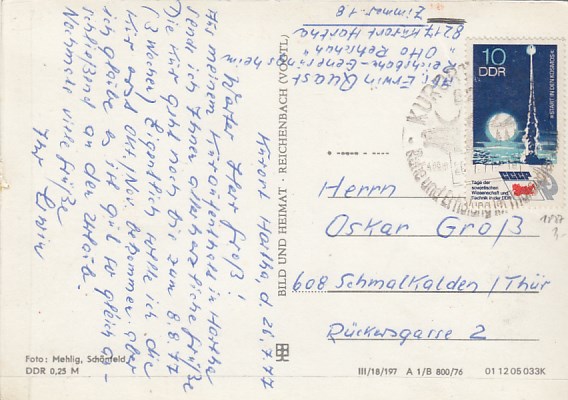 Abs. Erwin Quast
Reichsbahn-Genesungsheim
"Otto Rehschuh"
8217 Kurort Hartha
Zimmer 18
Kurort Hartha, d. 26.7.77
Werter Herr Groß!
Aus meinem Kuraufenthalt in Hartha
send ich Ihnen die herzliche Grüße
Die Kur geht noch bis zum 8.8.77
(3 Wochen) Eigentlich wollte ich die
Kur erst Okt/Nov. bekommen aber
ich glaube es ist gut so gleich an-
schließend an den Urlaub.
Nochmals viele Grüße
Ihr Erwin
BILD UND HEIMAT · REICHENBACH (VOGTL)
10
DDR
»START IN DEN KOSMOS«
Tage der
sowjetischen
Wissenschaft und
Technik in der DDR
KURORT
Herrn
Oskar Groß
608 Schmalkalden / Thür
Rückersgasse 2
Foto: Mehlig, Schönfeld
DDR 0,25 M
III/18/197 A 1/B 800/76 01 12 05 033K